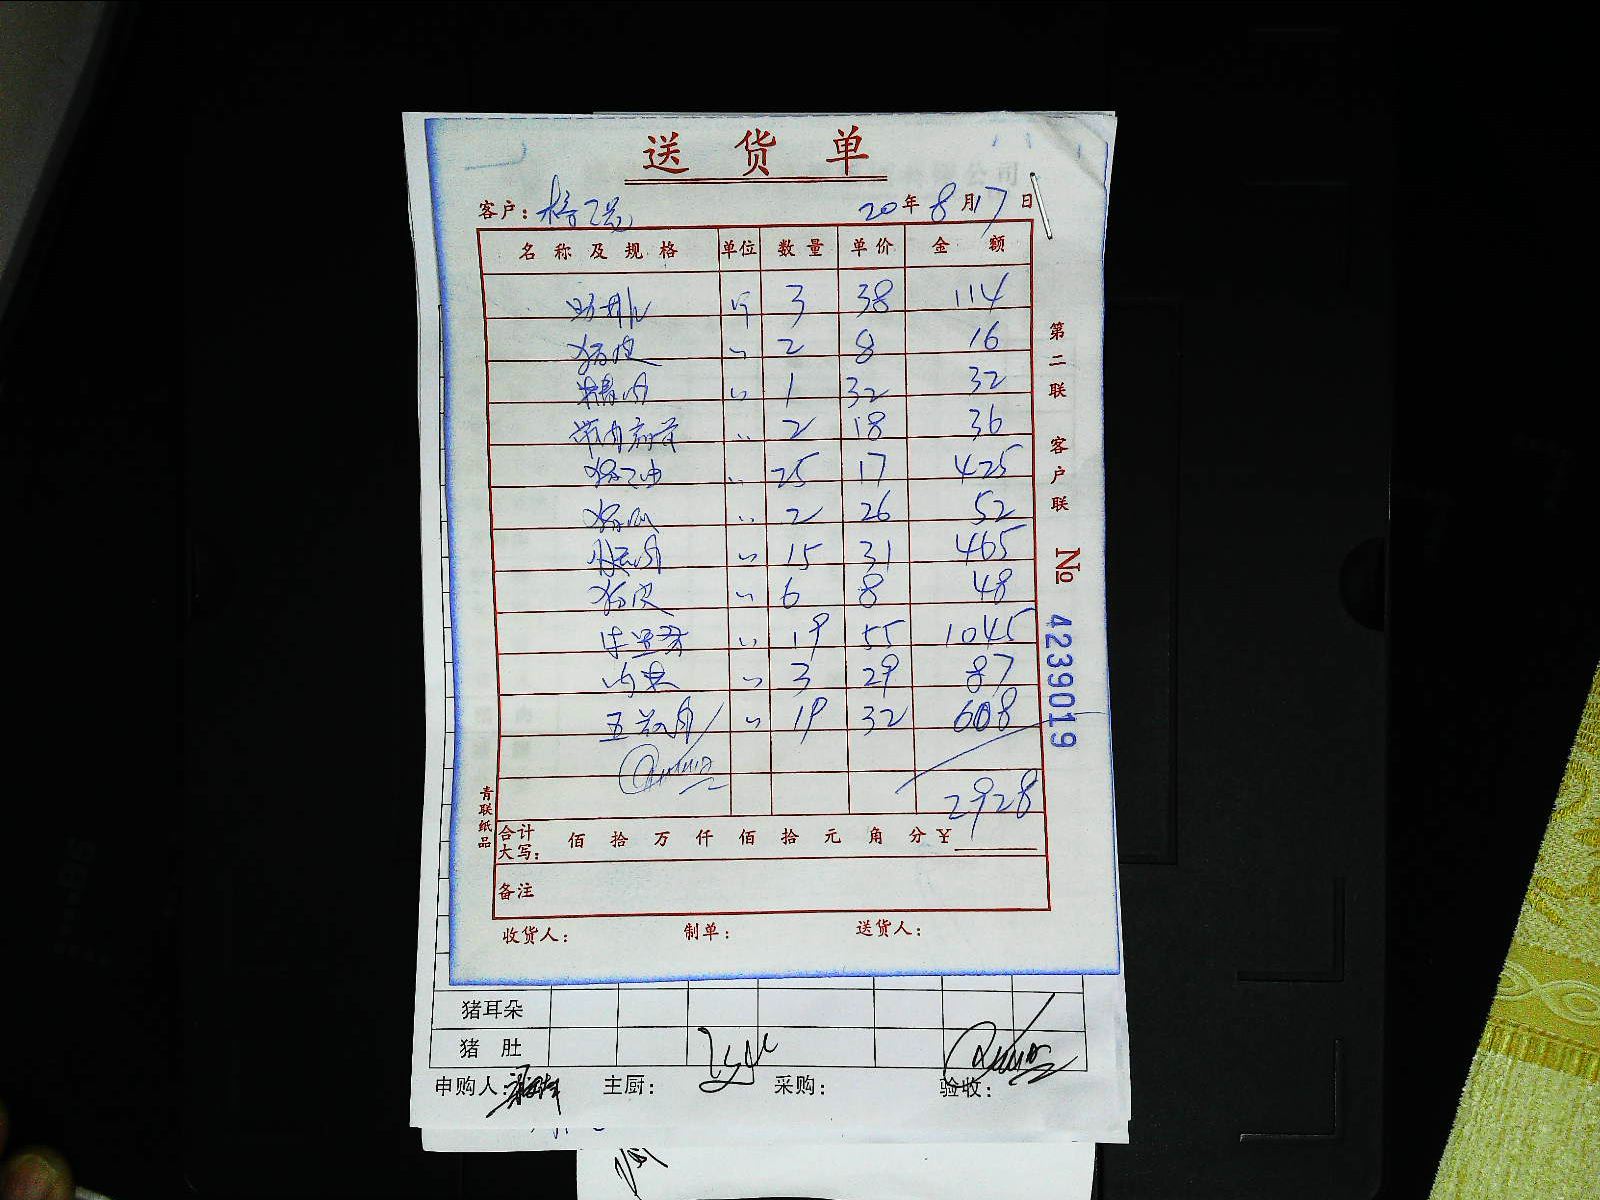 送货单
客户：
20年8月17日
名称及规格 单位 数量 单价 金额
肋排 斤 3 38 114
猪 〃 2 8 16
精肉 〃 1 32 32
带肉 〃 2 18 36
猪油 〃 25 17 425
猪 〃 2 26 52
腿肉 〃 15 31 465
猪皮 〃 6 8 48
牛 〃 19 55 1045
肉 〃 3 29 87
五花肉 〃 19 32 608
2928
合计大写： 佰 拾 万 仟 佰 拾 元 角 分 ¥
备注
收货人： 制单： 送货人：
第二联 客户联
№ 4239019
青联纸品
猪耳朵
猪 肚
申购人： 主厨： 采购： 验收：